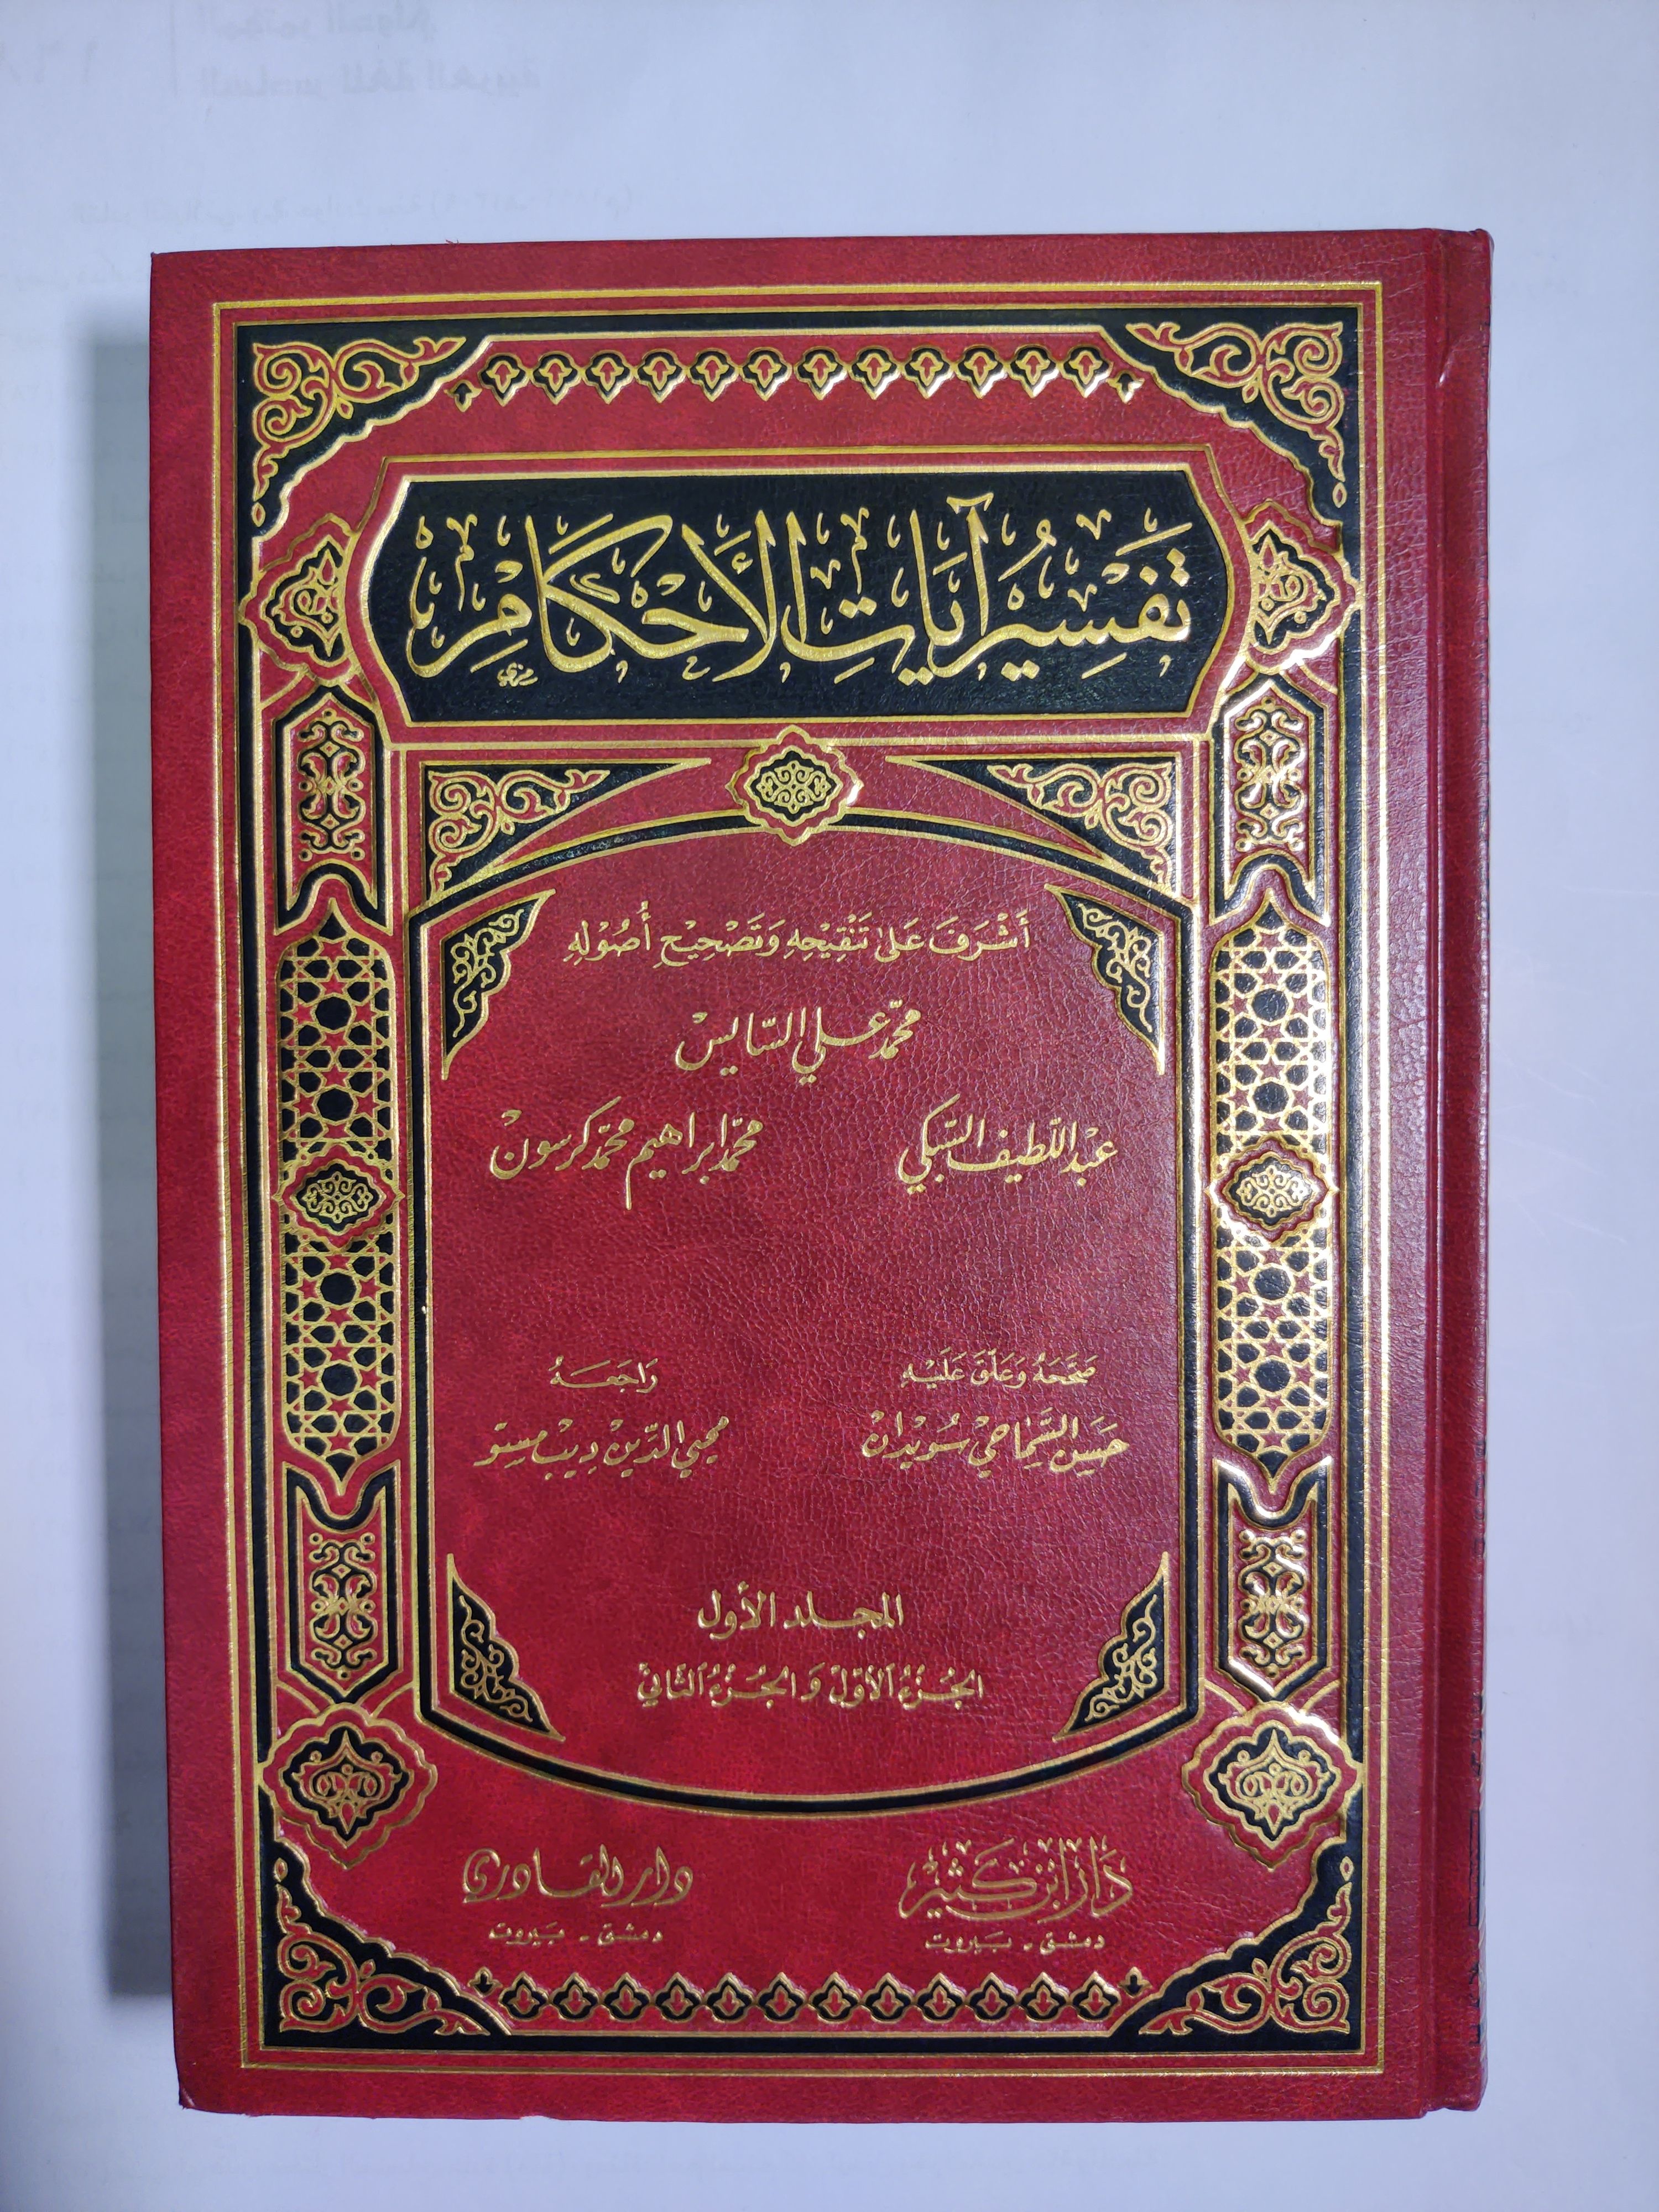 تَفْسِيرُ آيَاتِ الأَحْكَامِ
أَشْرَفَ عَلَىٰ تَنْقِيْحِهِ وَتَصْحِيْحِ أُصُوْلِهِ
محمّد علي السّايس
عبْد اللّطيف السّبكي
محمّد إبراهيم محمّد كرسون
صَحَّحَهُ وَعَلَّقَ عَلَيْهِ
حَسَن السَّمَاحِيْ سُوَيْدَانْ
رَاجَعَهُ
محيي الدّيْن ديْب مستو
المجلد الأول
الجُزْءُ الأَوّلْ وَالجُزْءُ الثَّانيْ
دَارُ ابْن كَثِيْر
دمشق - بَيروت
دار القادري
دمشق - بَيروت